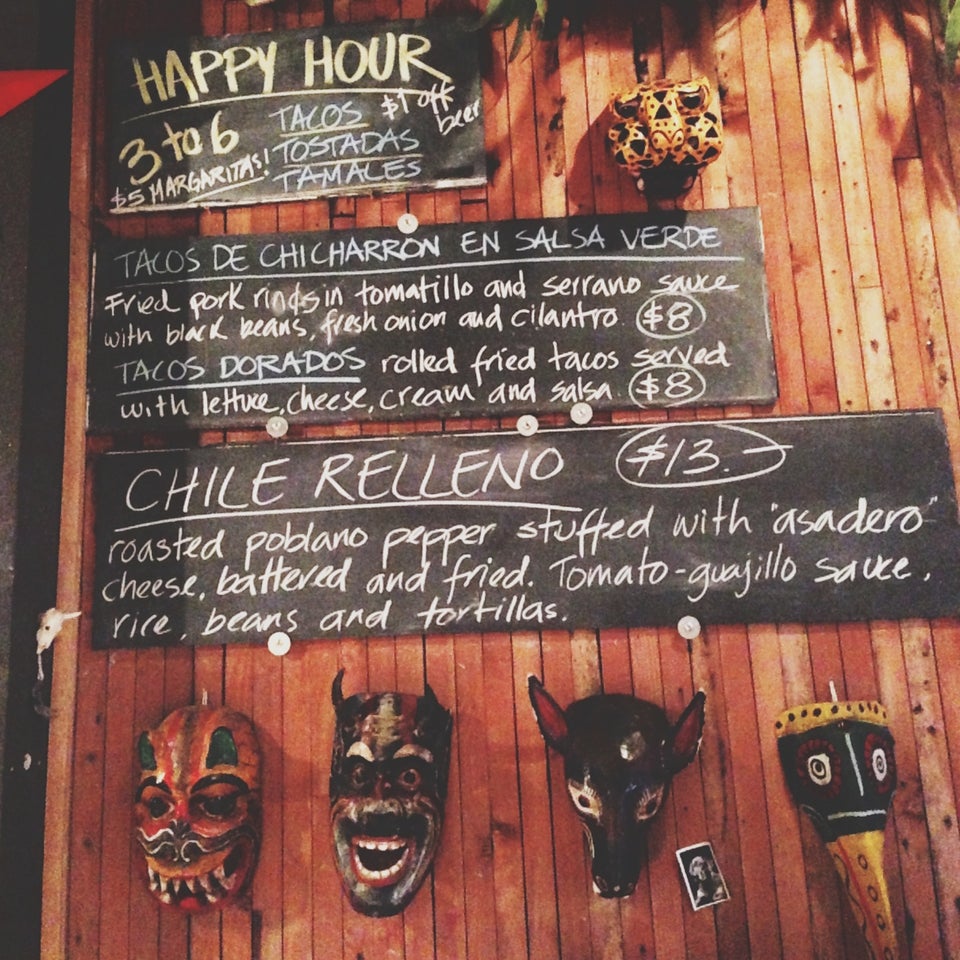 HAPPY HOUR
3 to 6
$5 MARGARITAS!
TACOS
TOSTADAS
TAMALES
$1 off
beer
TACOS DE CHICHARRON EN SALSA VERDE
Fried pork rinds in tomatillo and serrano sauce
with black beans, fresh onion and cilantro $8
TACOS DORADOS rolled fried tacos served
with lettuce, cheese, cream and salsa $8
CHILE RELLENO $13.-
roasted poblano pepper stuffed with "asadero"
cheese, battered and fried. Tomato-guajillo sauce,
rice, beans and tortillas.